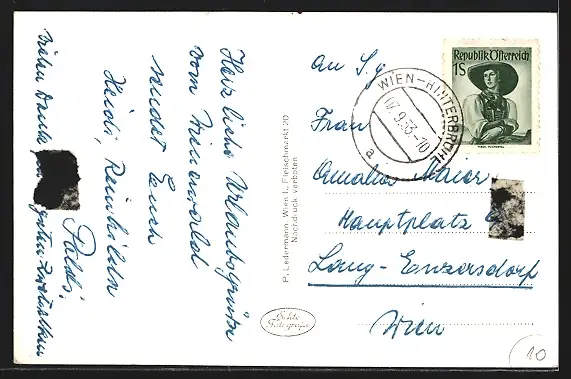 Herzliche Urlaubsgrüße
vom Wienerwald
sendet Euch
Heidi, Reinhilde
Poldi,
vielen Dank
P. Ledermann, Wien I., Fleischmarkt 20
Nachdruck verboten
Echte
Fotografie
Republik Österreich
1S
WIEN-HINTERBRÜHL
07.9.53-10
a
An S. g.
Frau
Amalia Maier
Hauptplatz
Lang-Enzersdorf
Wien
10